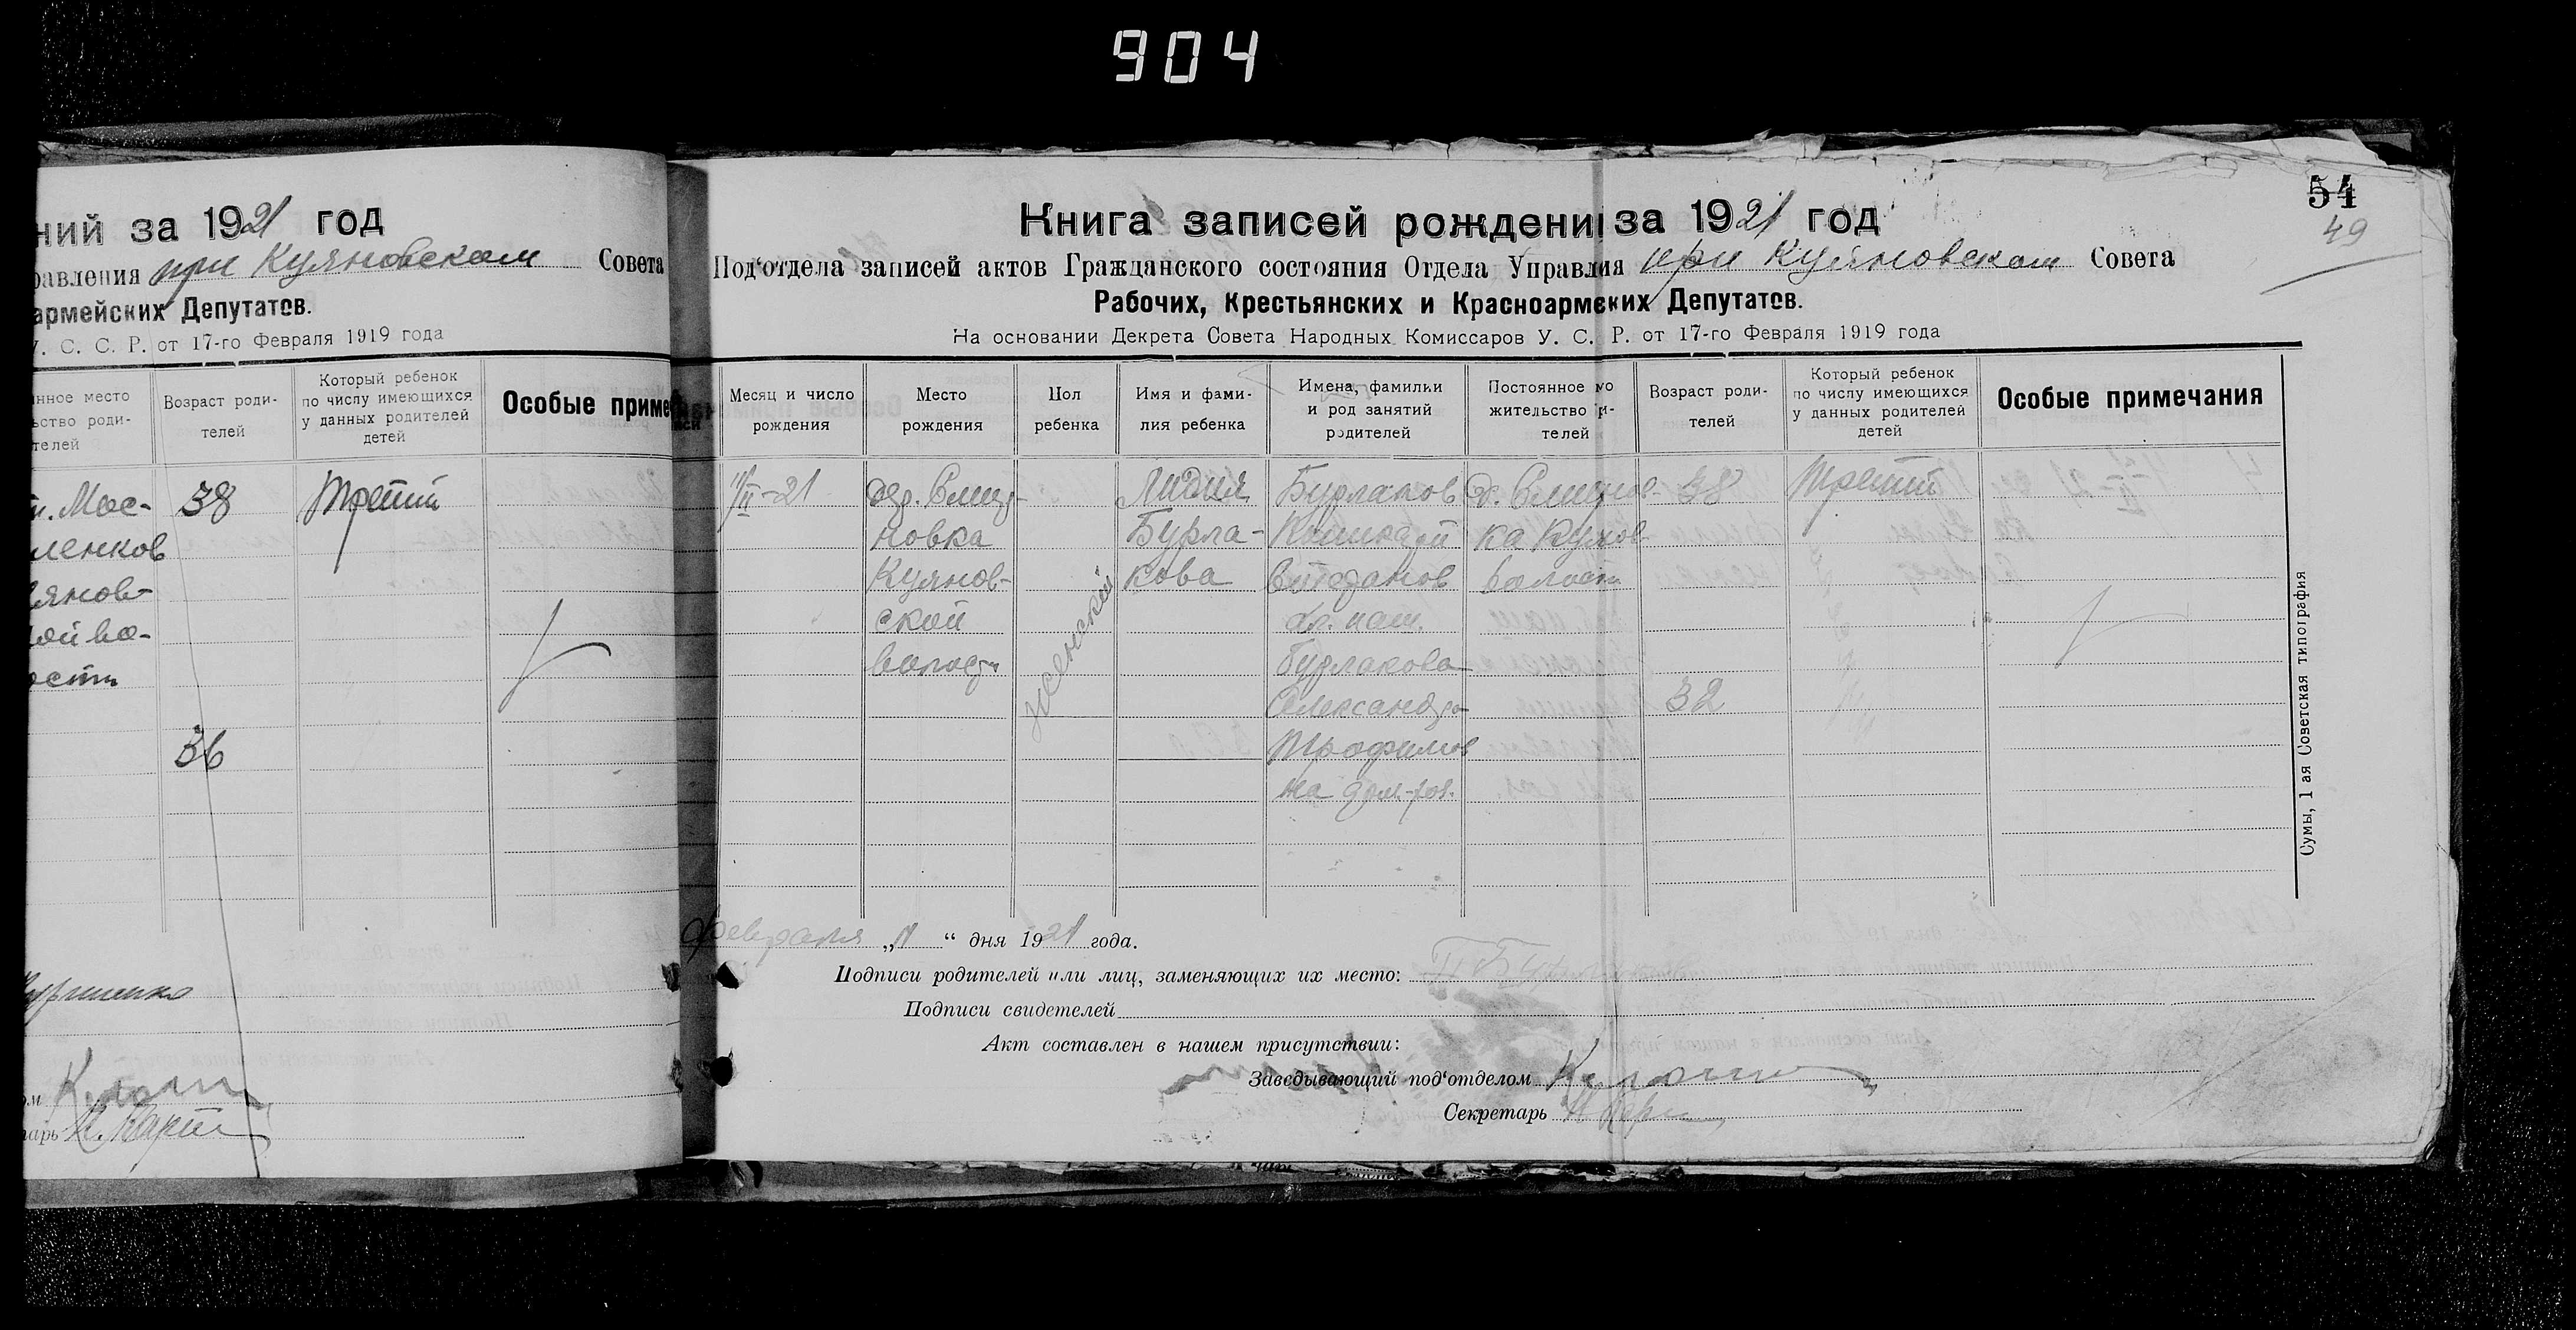 904
ний за 1921 год
равления при Куяновском Совета
армейских Депутатов.
У. С. С. Р. от 17-го Февраля 1919 года
нное место
ьство роди-
телей
Возраст роди-
телей
Который ребенок
по числу имеющихся
у данных родителей
детей
Особые приме
Мос-
ленков
янов-
ой во-
ости
38
36
Третий
арь
54
49
Книга записей рождени за 1921 год
Под‘отдела записей актов Гражданского состояния Отдела Управлия при Куяновском Совета
Рабочих, Крестьянских и Красноармских Депутатов.
На основании Декрета Совета Народных Комиссаров У. С. Р. от 17-го Февраля 1919 года
Месяц и число
рождения
Место
рождения
Пол
ребенка
Имя и фами-
лия ребенка
Имена, фамильи
и род занятий
родителей
Постоянное
жительство
телей
Возраст роди-
телей
Который ребенок
по числу имеющихся
у данных родителей
детей
Особые примечания
11/II-21
дер.
новка
Куянов-
ской
волости
женский
Лидия
Бурла-
кова
Бурлаков
хл. паш.
Бурлакова
Александра
Трофимов
на дом.
д.
ка
волости
38
32
Третий
Февраля „11“ дня 1921 года.
Подписи родителей или лиц, заменяющих их место:
Подписи свидетелей
Акт составлен в нашем присутствии:
Заведывающий под‘отделом
Секретарь
Сумы, 1 ая Советская типография